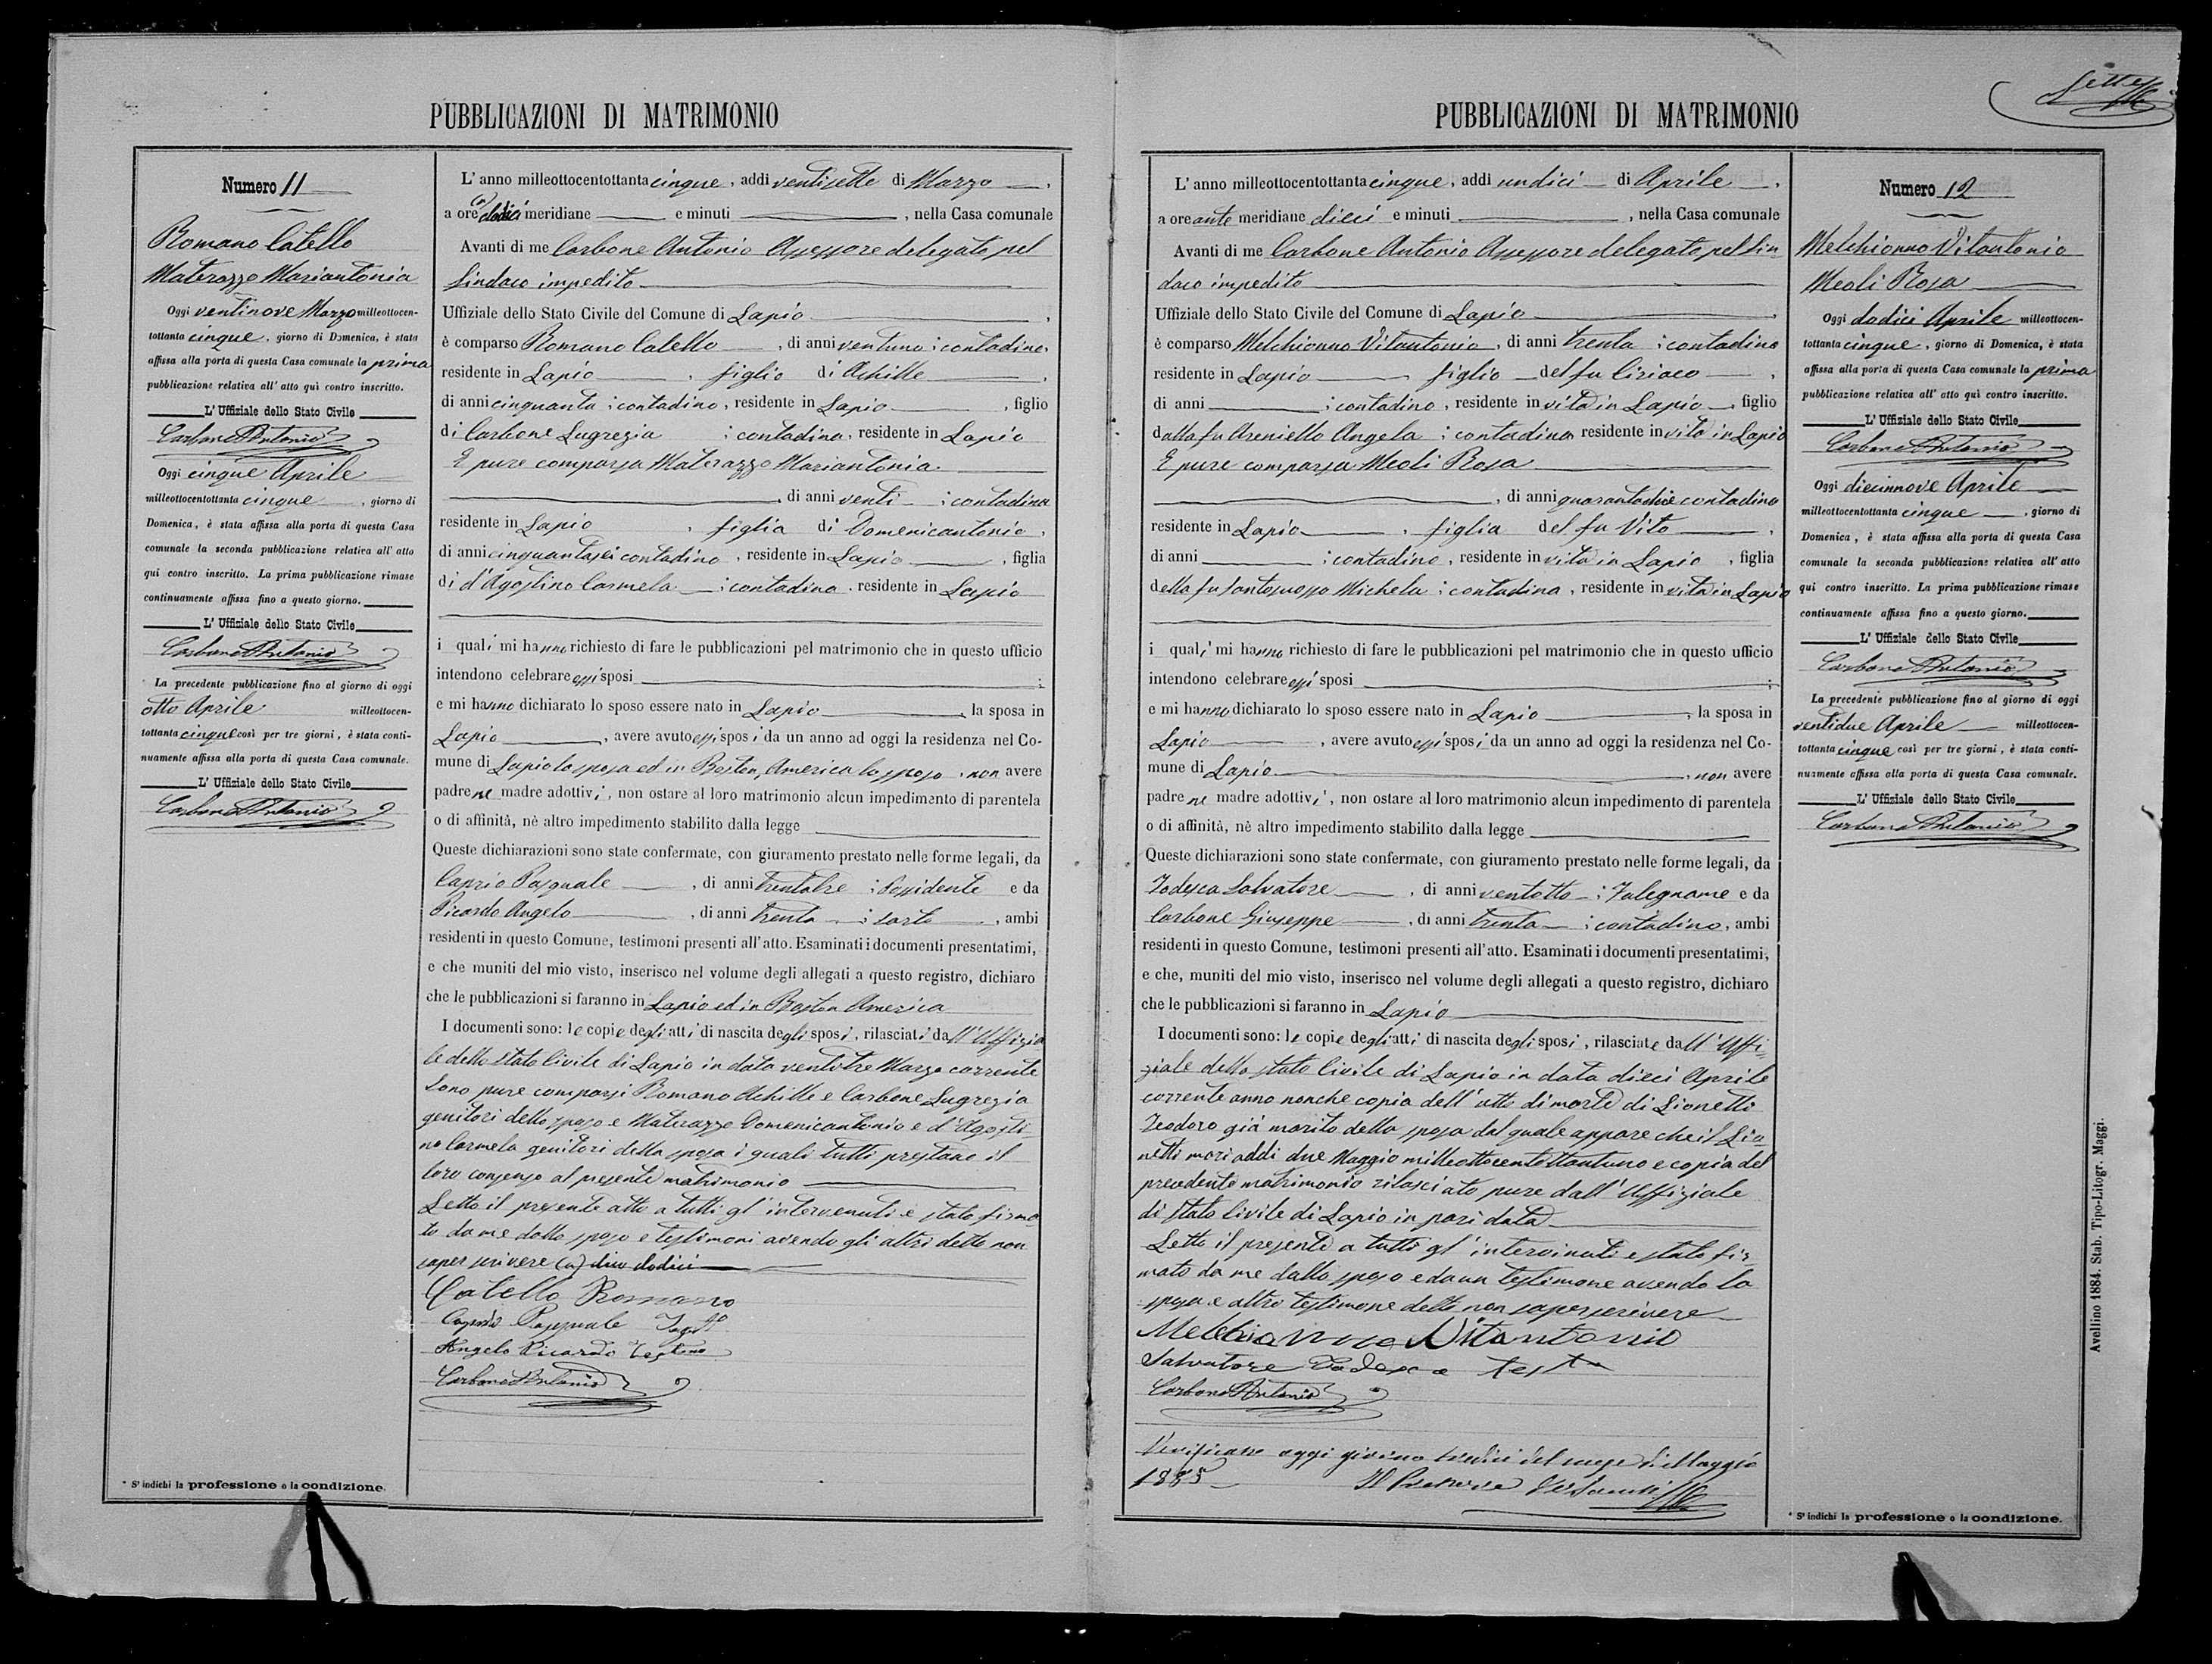 PUBBLICAZIONI DI MATRIMONIO
Numero 11
Romano Catello
Materazzo Mariantonia
Oggi ventinove Marzo milleottocen-
tottanta cinque, giorno di Domenica, è stata
affissa alla porta di questa Casa comunale la prima
pubblicazione relativa all' atto quì contro inscritto.
L' Uffiziale dello Stato Civile
Carbone Antonio
Oggi cinque Aprile
milleottocentottanta cinque, giorno di
Domenica, è stata affissa alla porta di questa Casa
comunale la seconda pubblicazione relativa all' atto
qui contro inscritto. La prima pubblicazione rimase
continuamente affissa fino a questo giorno.
L' Uffiziale dello Stato Civile
Carbone Antonio
La precedente pubblicazione fino al giorno di oggi
otto Aprile milleottocen-
tottanta cinque così per tre giorni, è stata conti-
nuamente affissa alla porta di questa Casa comunale.
L' Uffiziale dello Stato Civile
Carbone Antonio
* Si indichi la professione o la condizione.
L' anno milleottocentottanta cinque, addi ventisette di Marzo
a ore (a) dodici meridiane e minuti, nella Casa comunale
Avanti di me Carbone Antonio Assessore delegato pel
Sindaco impedito
Uffiziale dello Stato Civile del Comune di Lapio
è comparso Romano Catello, di anni ventuno; contadino,
residente in Lapio, figlio di Achille
di anni cinquanta; contadino, residente in Lapio, figlio
di Carbone Lugrezia; contadina, residente in Lapio
E pure comparsa Materazzo Mariantonia
, di anni venti; contadina
residente in Lapio, figlia di Domenicantonio,
di anni cinquantasei contadino, residente in Lapio, figlia
di d'Agostino Carmela; contadina, residente in Lapio
i quali mi hanno richiesto di fare le pubblicazioni pel matrimonio che in questo ufficio
intendono celebrare essi sposi;
e mi hanno dichiarato lo sposo essere nato in Lapio, la sposa in
Lapio, avere avuto essi sposi da un anno ad oggi la residenza nel Co-
mune di Lapio la sposa ed in Boston, America lo sposo, non avere
padre ne madre adottivi, non ostare al loro matrimonio alcun impedimento di parentela
o di affinità, nè altro impedimento stabilito dalla legge
Queste dichiarazioni sono state confermate, con giuramento prestato nelle forme legali, da
Caprio Pasquale, di anni trentatre; Possidente e da
Picardo Angelo, di anni trenta; sarto, ambi
residenti in questo Comune, testimoni presenti all'atto. Esaminati i documenti presentatimi,
e che muniti del mio visto, inserisco nel volume degli allegati a questo registro, dichiaro
che le pubblicazioni si faranno in Lapio ed in Boston America
I documenti sono: le copie degli atti di nascita degli sposi, rilasciati dall' Uffizia
le dello Stato Civile di Lapio in data ventitre Marzo corrente
Sono pure comparsi Romano Achille e Carbone Lugrezia
genitori dello sposo e Materazzo Domenicantonio e d'Agosti-
no Carmela genitori della sposa i quali tutti prestano il
loro consenso al presente matrimonio
Letto il presente atto a tutti gl' intervenuti e stato firma
to da me dallo sposo e testimoni avendo gli altri detto non
saper scrivere (a) dico dodici
Catello Romano
Caprio Pasquale
Angelo Picardo
Carbone Antonio
PUBBLICAZIONI DI MATRIMONIO
L' anno milleottocentottanta cinque, addi undici di Aprile
a ore ante meridiane dieci e minuti, nella Casa comunale
Avanti di me Carbone Antonio Assessore delegato pel Sin
daco impedito
Uffiziale dello Stato Civile del Comune di Lapio
è comparso Melchionno Vitantonio, di anni trenta; contadino
residente in Lapio, figlio del fu Ciriaco
di anni; contadino, residente in vita in Lapio, figlio
dalla fu Areniello Angela; contadina residente in vita in Lapio
E pure comparsa Meoli Rosa
, di anni quarantadue contadina
residente in Lapio, figlia del fu Vito
di anni; contadino, residente in vita in Lapio, figlia
della fu Santosuosso Michela; contadina, residente in vita in Lapio
i quali mi hanno richiesto di fare le pubblicazioni pel matrimonio che in questo ufficio
intendono celebrare essi sposi;
e mi hanno dichiarato lo sposo essere nato in Lapio, la sposa in
Lapio, avere avuto essi sposi da un anno ad oggi la residenza nel Co-
mune di Lapio, non avere
padre ne madre adottivi, non ostare al loro matrimonio alcun impedimento di parentela
o di affinità, nè altro impedimento stabilito dalla legge
Queste dichiarazioni sono state confermate, con giuramento prestato nelle forme legali, da
Todesca Salvatore, di anni ventotto; Falegname e da
Carbone Giuseppe, di anni trenta; contadino, ambi
residenti in questo Comune, testimoni presenti all'atto. Esaminati i documenti presentatimi,
e che, muniti del mio visto, inserisco nel volume degli allegati a questo registro, dichiaro
che le pubblicazioni si faranno in Lapio
I documenti sono: le copie degli atti di nascita degli sposi, rilasciate dall' Uffi-
ziale dello stato Civile di Lapio in data dieci Aprile
corrente anno nonche copia dell' atto di morte di Lionetti
Teodoro già marito della sposa dal quale appare che il Lio
netti morì addi due Maggio milleottocentottantuno e copia del
precedente matrimonio rilasciato pure dall' Uffiziale
di Stato Civile di Lapio in pari data
Letto il presente a tutti gl' intervinuti e stato fir
mato da me dallo sposo e da un testimone avendo la
sposa e altro testimone detto non saper scrivere
Melchionno Vitantonio
Salvatore Todesca
Carbone Antonio
Verificato oggi giorno tredici del mese di Maggio
1885
Il Pretore
Numero 12
Melchionno Vitantonio
Meoli Rosa
Oggi dodici Aprile milleottocen-
tottanta cinque, giorno di Domenica, è stata
affissa alla porta di questa Casa comunale la prima
pubblicazione relativa all' atto quì contro inscritto.
L' Uffiziale dello Stato Civile
Carbone Antonio
Oggi diecinnove Aprile
milleottocentottanta cinque, giorno di
Domenica, è stata affissa alla porta di questa Casa
comunale la seconda pubblicazione relativa all' atto
qui contro inscritto. La prima pubblicazione rimase
continuamente affissa fino a questo giorno.
L' Uffiziale dello Stato Civile
Carbone Antonio
La precedente pubblicazione fino al giorno di oggi
ventidue Aprile milleottocen-
tottanta cinque così per tre giorni, è stata conti-
nuamente affissa alla porta di questa Casa comunale.
L' Uffiziale dello Stato Civile
Carbone Antonio
* Si indichi la professione o la condizione.
Avellino 1884. Stab. Tipo-Litogr. Maggi.